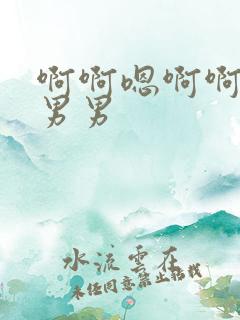 啊啊嗯啊啊
男男
水流雲在
未经同意禁止搭载